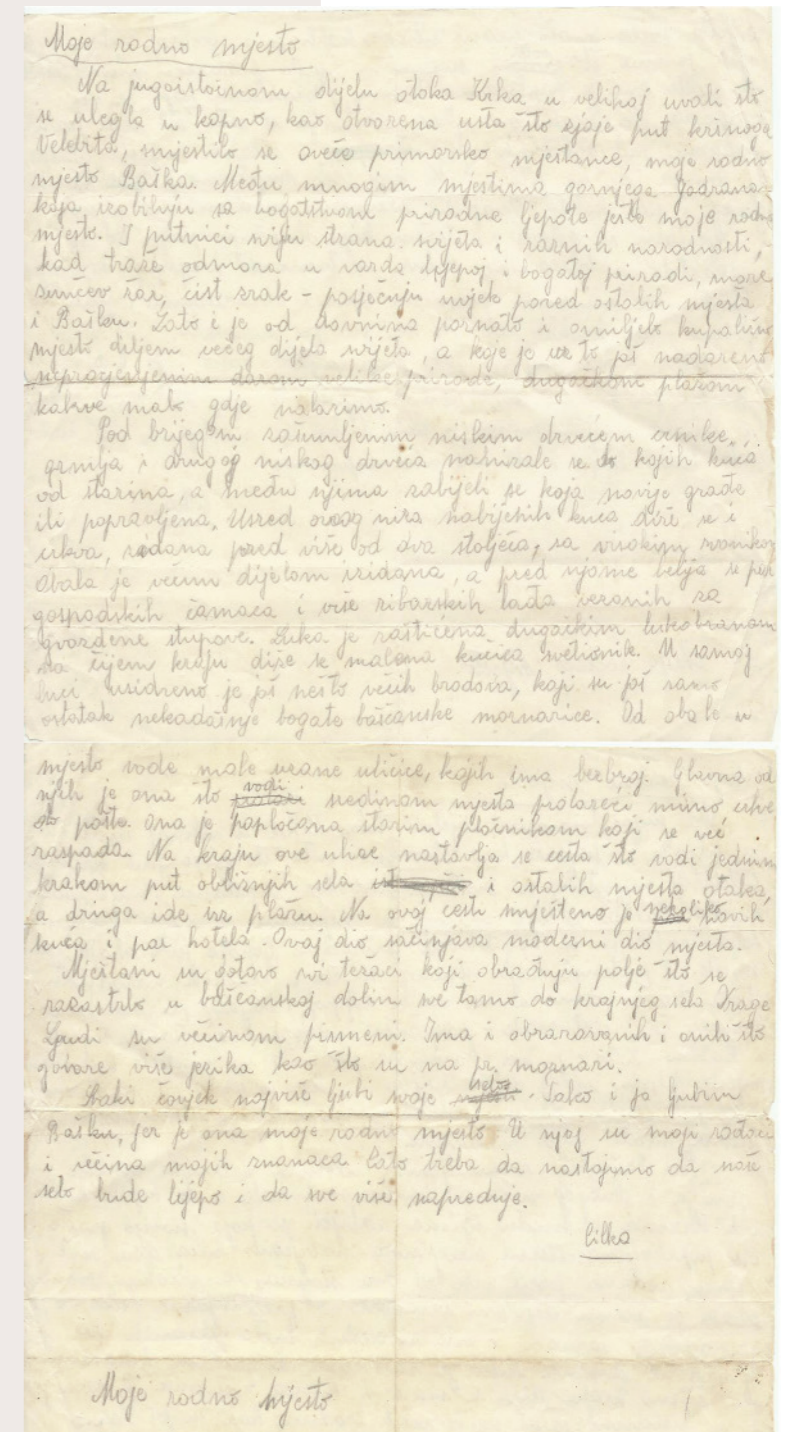 Moje rodno mjesto
Na jugoistočnom dijelu otoka Krka u velikoj uvali što
se ulegla u kopno, kao otvorena usta što zjaje put krševitog
Velebita, smjestilo se oveće primorsko mjestance, moje rodno
mjesto Baška. Među mnogim mjestima gornjega Jadrana
koja izobiluju sa bogatstvom prirodne ljepote jeste moje rodno
mjesto. I putnici sviju strana svijeta i raznih narodnosti,
kad traže odmora u vazda lijepoj i bogatoj prirodi, more
sunčev žar, čist zrak - posjećuju uvijek pored ostalih mjesta
i Bašku. Zato i je od davnina poznato i omiljelo kupališno
mjesto diljem većeg dijela svijeta, a koje je uz to još nadareno
neprocjenjenim darom velike prirode, dugačkom plažom
kakve malo gdje nalazimo.
Pod brijegom zašumljenim niskim drvećem crnike,
grmlja i drugog niskog drveća nanizale se do kojih kuća
od starina, a među njima zabijeli se koja novije građe
ili popravljena. Usred ovog niza nabijenih kuća diže se i
crkva, zidana pred više od dva stoljeća, sa visokim zvonikom
Obala je većim dijelom izidana, a pred njome bijelja se par
gospodskih čamaca i više ribarskih lađa vezanih za
gvozdene stupove. Luka je zaštićena dugačkim lukobranom
na čijem kraju diže se malena kućica svetionik. U samoj
luci usidreno je još nešto većih brodova, koji su još samo
ostatak nekadašnje bogate bašćanske mornarice. Od obale u
mjesto vode male uzane uličice, kojih ima bezbroj. Glavna od
njih je ona što vodi sredinom mjesta prolazeći mimo crkve
do pošte. Ona je popločana starim pločnikom koji se već
raspada. Na kraju ove ulice nastavlja se cesta što vodi jednim
krakom put obližnjih sela i ostalih mjesta otoka,
a druga ide uz plažu. Na ovoj cesti smješteno je nekoliko novih
kuća i par hotela. Ovaj dio sačinjava moderni dio mjesta.
Mještani su gotovo svi težaci koji obrađuju polje što se
razastrlo u bašćanskoj dolini sve tamo do krajnjeg sela Drage
Ljudi su većinom pismeni. Ima i obrazovanih i onih što
govore više jezika kao što su na pr. moznari.
Svaki čovjek najviše ljubi svoje selo. Tako i ja ljubim
Bašku, jer je ona moje rodno mjesto U njoj su moji rođaci
i većina mojih znanaca. Zato treba da nastojimo da naše
selo bude lijepo i da sve više napreduje.
Cilka
Moje rodno mjesto